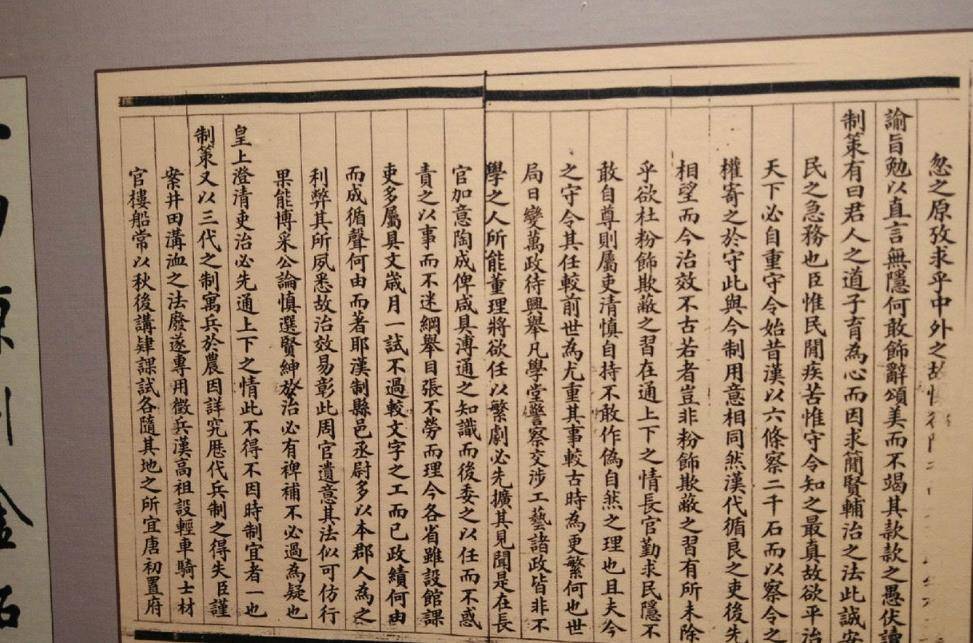 忽之原攷求乎中外之故
諭旨勉以直言無隱何敢飾辭頌美而不竭其款款之愚伏讀
制策有曰君人之道子育為心而因求簡賢輔治之法此誠安
民之急務也臣惟民間疾苦惟守令知之最真故欲平治
天下必自重守令始昔漢以六條察二千石而以察令之
權寄之於守此與今制用意相同然漢代循良之吏後先
相望而今治效不古若者豈非粉飾欺蔽之習有所未除
乎欲杜粉飾欺蔽之習在通上下之情長官勤求民隱不
敢自尊則屬吏清慎自持不敢作偽自然之理也且夫今
之守令其任較前世為尤重其事較古時為更繁何也世
局日變萬政待興舉凡學堂警察交涉工藝諸政皆非不
學之人所能董理將欲任以繁劇必先擴其見聞是在長
官加意陶成俾咸具溥通之知識而後委之以任而不惑
責之以事而不迷綱舉目張不勞而理今各省雖設館課
吏多屬具文歲月一試不過較文字之工而已政績何由
而成循聲何由而著耶漢制縣邑丞尉多以本郡人為之
利弊其所夙悉故治效易彰此周官遺意其法似可仿行
果能博采公論慎選賢紳於治必有裨補不必過為疑也
皇上澄清吏治必先通上下之情此不得不因時制宜者一也
制策又以三代之制寓兵於農因詳究歷代兵制之得失臣謹
案井田溝洫之法廢遂專用徵兵漢高祖設輕車騎士材
官樓船常以秋後講肄課試各隨其地之所宜唐初置府